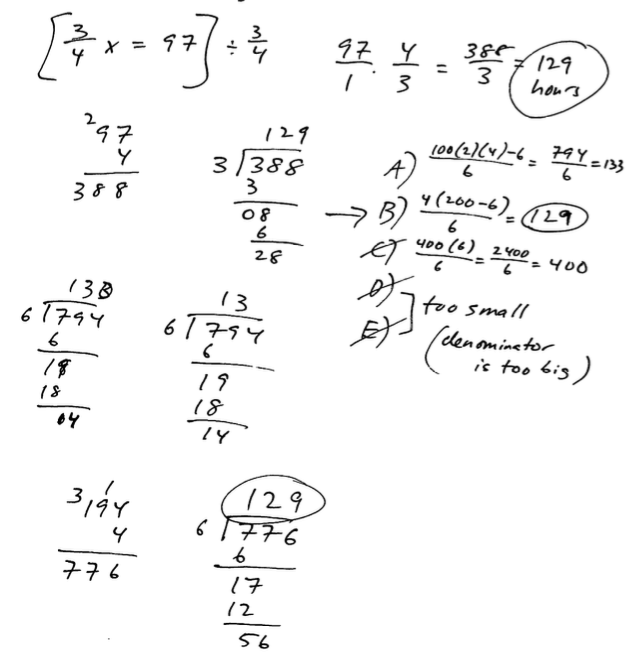 [3/4 x = 97] ÷ 3/4
97/1 · 4/3 = 388/3 = 129 hours
²97
4
388
129
3 388
3
08
6
28
A) 100(2)(4)-6/6 = 794/6 = 133
→ B) 4(200-6)/6 = 129
C) 400(6)/6 = 2400/6 = 400
D)
E)
] too small
(denominator
is too big)
13
6 794
6
19
18
04
13
6 794
6
19
18
14
3 1
194
4
776
129
6 776
6
17
12
56